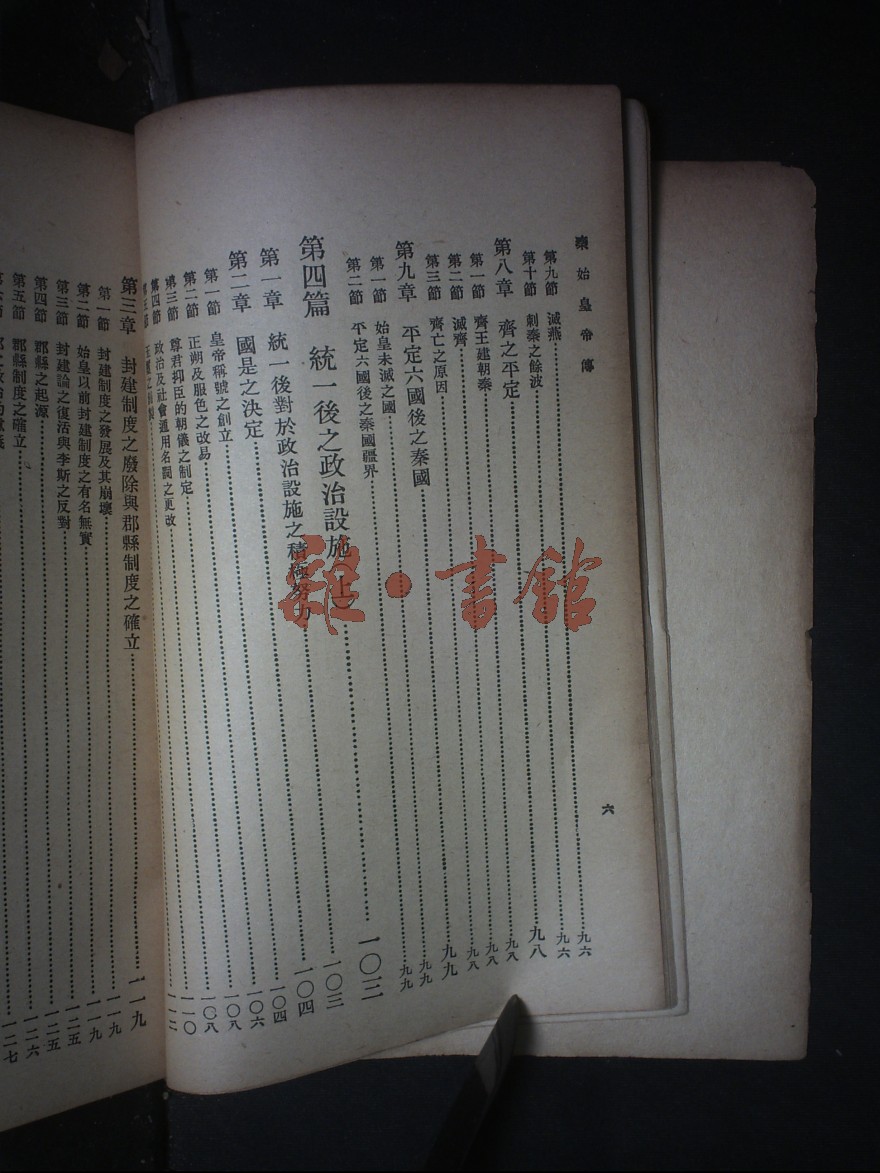 秦始皇帝傳
六
第九節 滅燕……九六
第十節 刺秦之餘波……九六
第八章 齊之平定……九八
第一節 齊王建朝秦……九八
第二節 滅齊……九八
第三節 齊亡之原因……九八
第九章 平定六國後之秦國……九九
第一節 始皇未滅之國……九九
第二節 平定六國後之秦國疆界……九九
第四篇 統一後之政治設施（上）……一〇三
第一章 統一後對於政治設施之積極努力……一〇三
第二章 國是之決定……一〇四
第一節 皇帝稱號之創立……一〇四
第二節 正朔及服色之改易……一〇六
第三節 尊君抑臣的朝儀之制定……一〇八
第四節 政治及社會通用名詞之更改……一〇八
第五節……一一〇
一一二
第三章 封建制度之廢除與郡縣制度之確立……一一九
第一節 封建制度之發展及其崩壞……一一九
第二節 始皇以前封建制度之有名無實……一一九
第三節 封建論之復活與李斯之反對……一二五
第四節 郡縣之起源……一二五
第五節 郡縣制度之確立……一二六
一二七
雜·書館